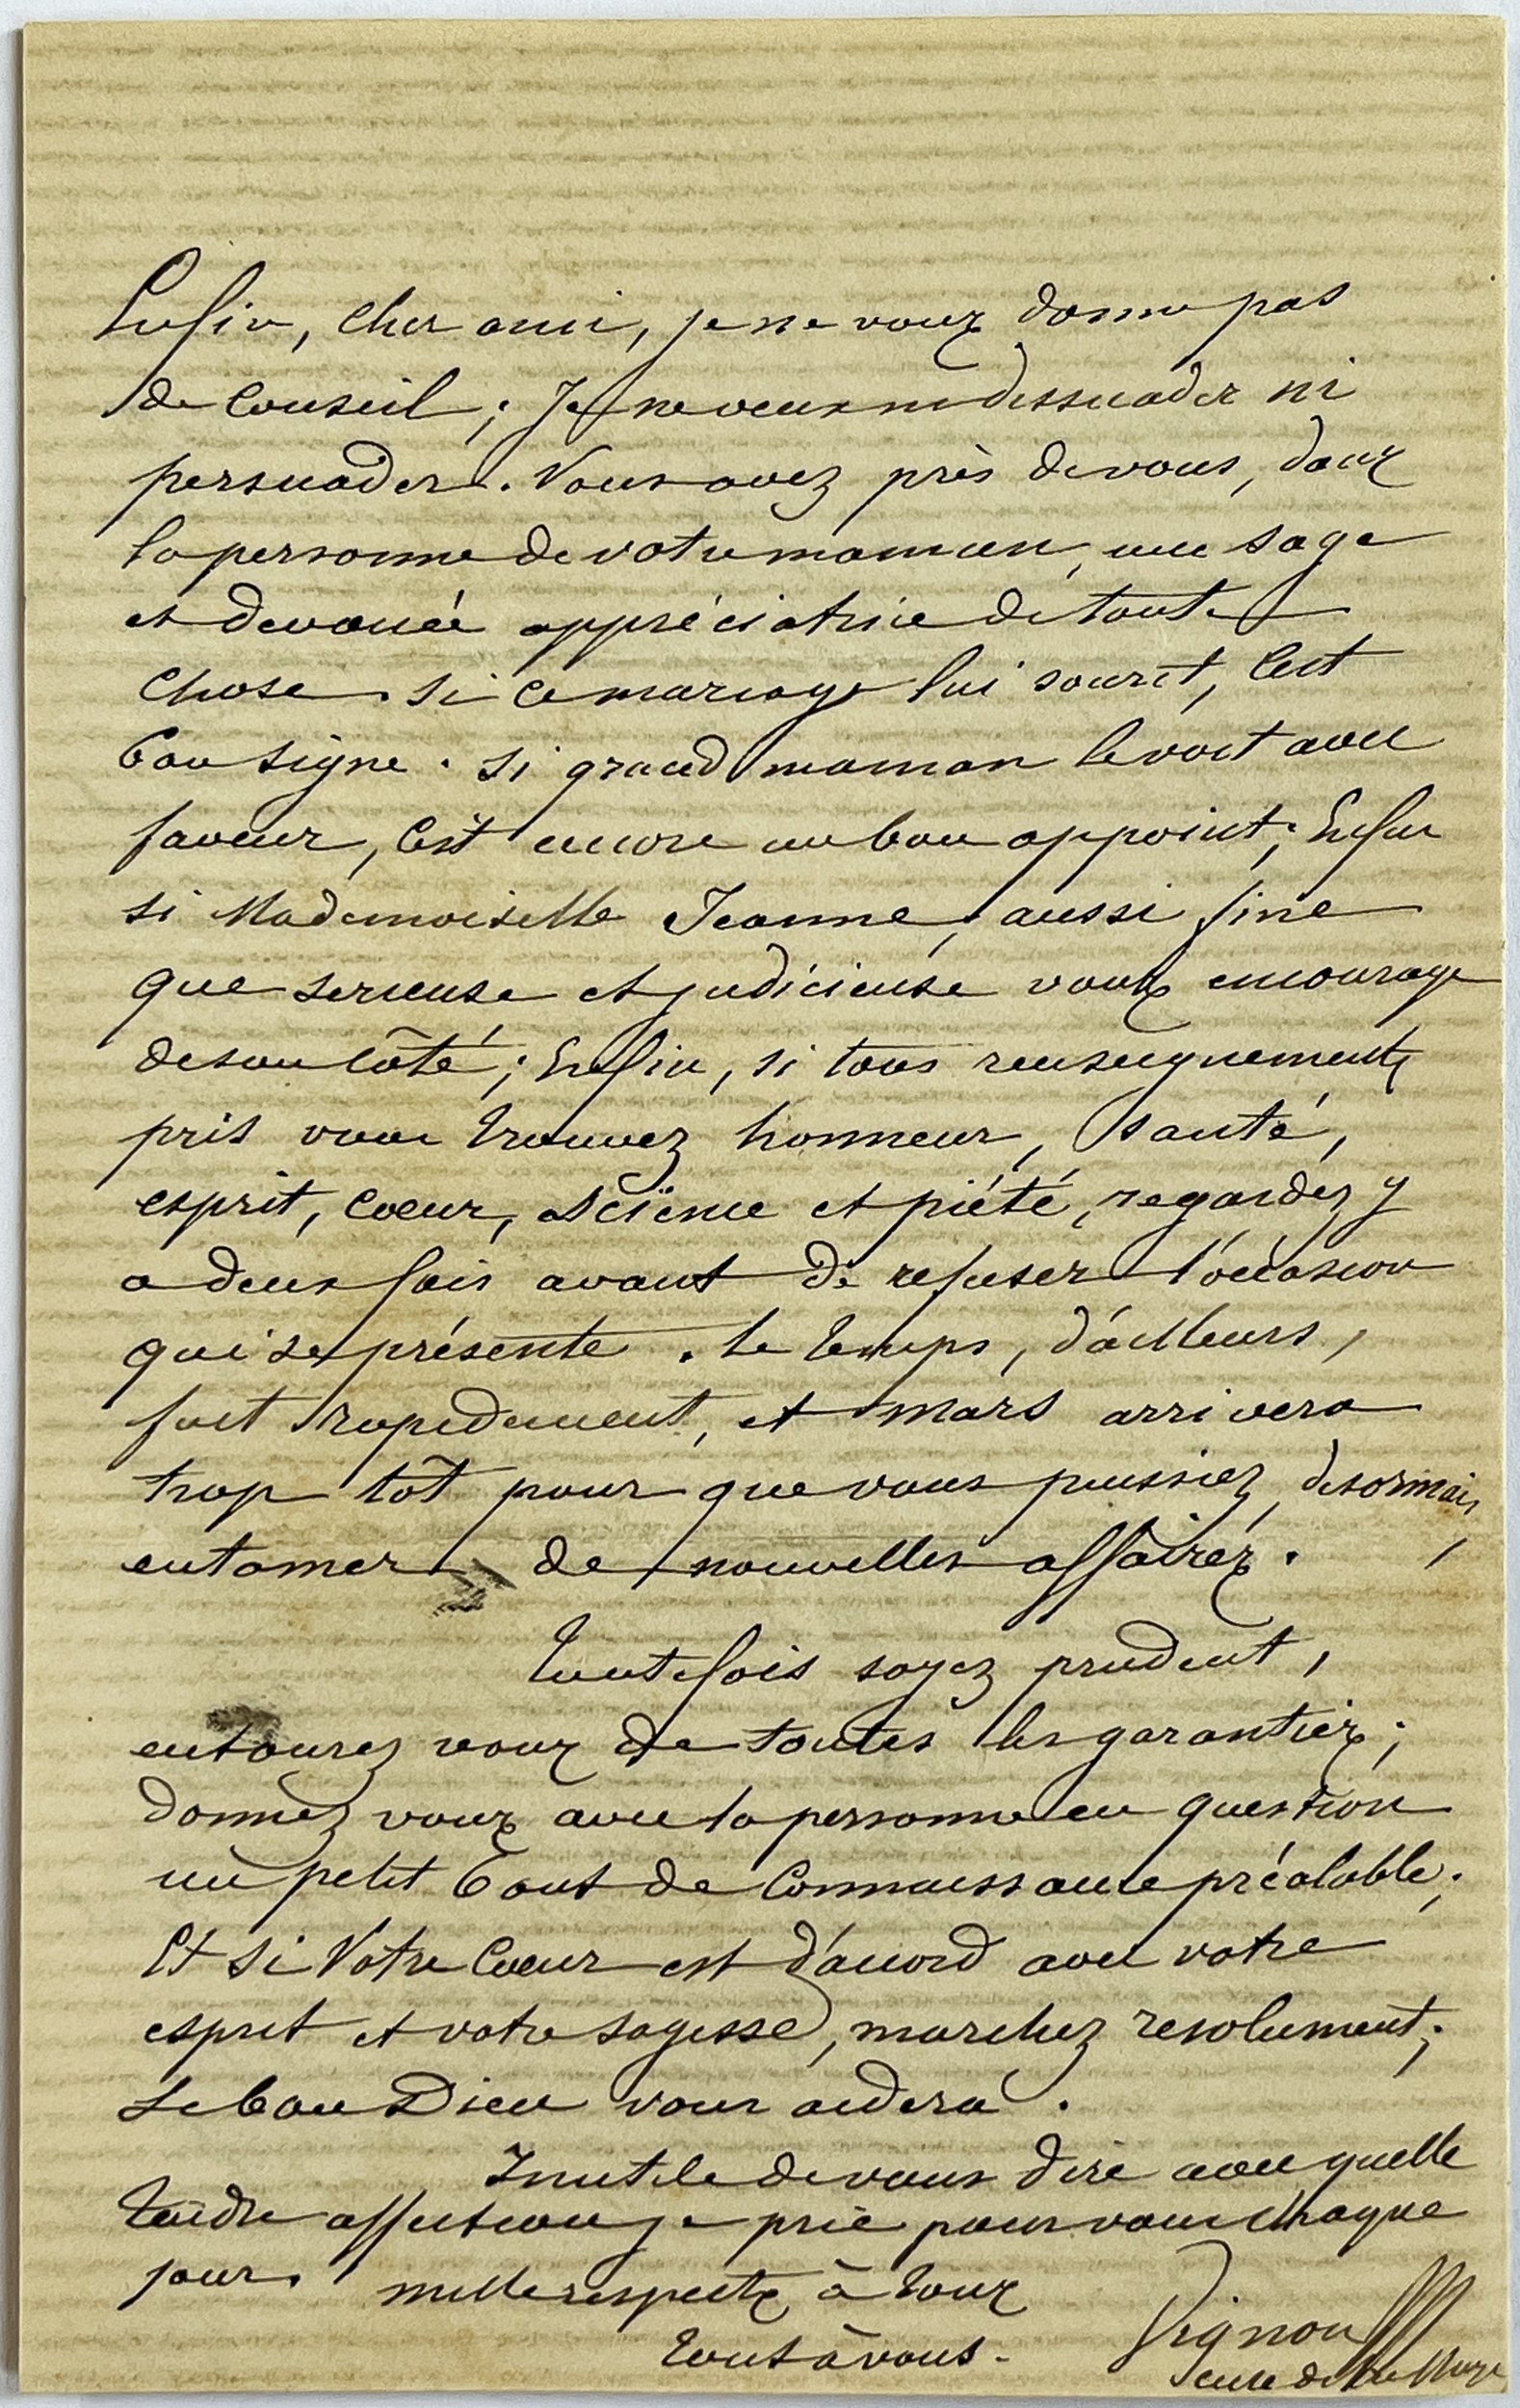 Enfin, cher ami, je ne vous donne pas
de conseil ; Je ne veux ni dissuader ni
persuader. Vous avez près de vous, dans
la personne de votre maman, une sage
et devouée appréciatrice de toute
chose. Si ce mariage lui sourit, c'est
bon signe. Si grand maman le voit avec
faveur, c'est encore un bon appoint ; Enfin
si Mademoiselle Jeanne, aussi fine
que serieuse et judicieuse vous encourage
de son côté ; Enfin, si tous renseignements
pris vous trouvez honneur, santé,
esprit, coeur, science et piété, regardez y
a deux fois avant de refuser l'occasion
qui se présente. Le temps, d'ailleurs,
fuit rapidement, et mars arrivera
trop tôt pour que vous puissiez, desormais,
entamer de nouvelles affaires.
Toutefois soyez prudent,
entourez vous de toutes les garanties ;
donnez vous avec la personne en question
un petit bout de connaissance préalable ;
Et si Votre Coeur est d'accord avec votre
esprit et votre sagesse, marchez resolument ;
Le bon Dieu vous aidera.
Inutile de vous dire avec quelle
tendre affection je prie pour vous chaque
jour. mille respects à tous
tout à vous.
Vignon
curé de la